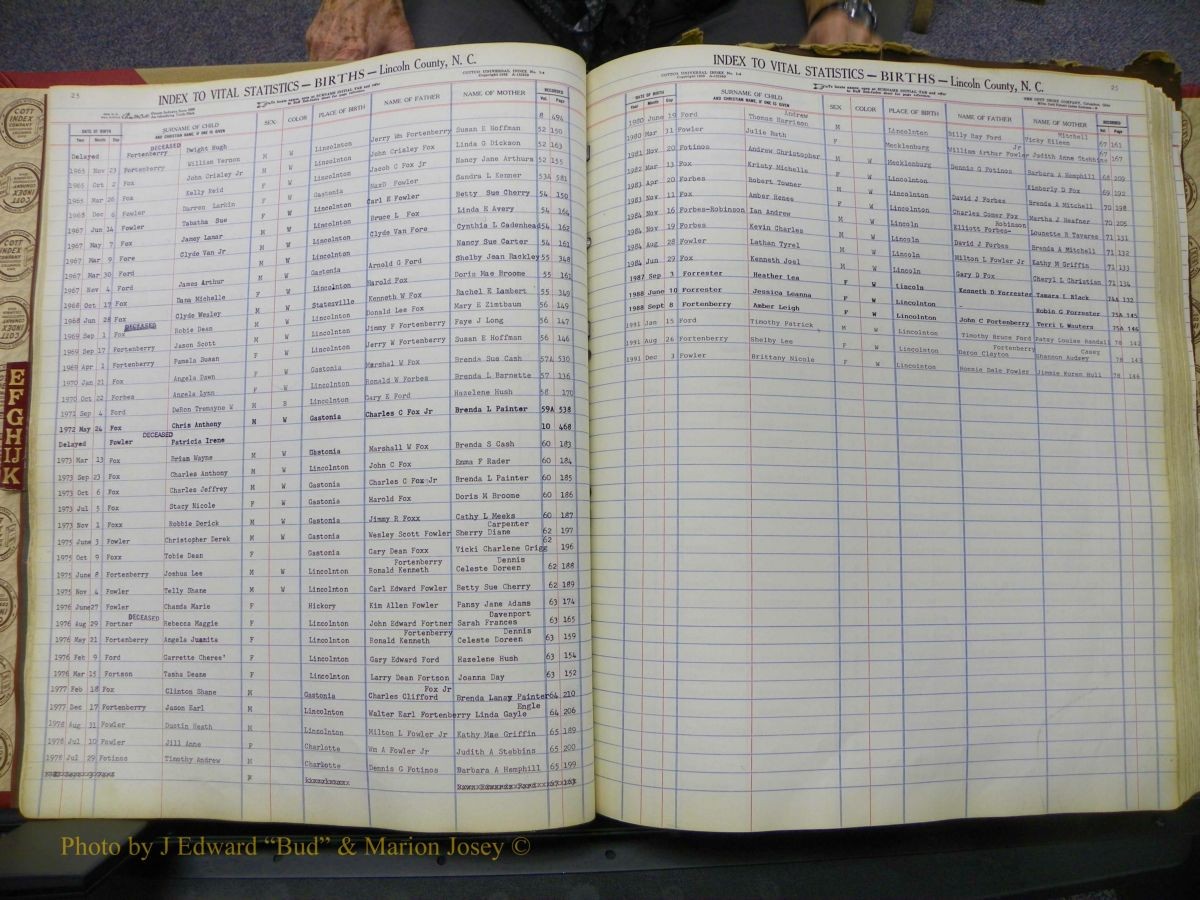 INDEX TO VITAL STATISTICS — BIRTHS — Lincoln County, N. C.
COTT'S UNIVERSAL INDEX No. 1-A
25
DATE OF BIRTH SURNAME OF CHILD AND CHRISTIAN NAME, IF ONE IS GIVEN SEX COLOR PLACE OF BIRTH NAME OF FATHER NAME OF MOTHER RECORDED
Year Month Day Vol. Page
DECEASED
Delayed Fortenberry Dwight Hugh 8 494
1965 Nov 23 Fortenberry William Vernon M W Lincolnton Jerry Wm Fortenberry Susan E Hoffman 52 150
1965 Oct 2 Fox John Crisley Jr M W Lincolnton John Crisley Fox Linda G Dickson 52 163
1965 Mar 26 Fox Kelly Reid F W Lincolnton Jacob C Fox Jr Nancy Jane Arthurs 52 155
1968 Dec 6 Fowler Darren Larkin Gastonia MaxD Fowler Sandra L Kenner 53A 581
1967 Jun 14 Fowler Tabatha Sue F W Lincolnton Carl E Fowler Betty Sue Cherry 54 150
1967 May 7 Fox Jamey Lamar Lincolnton Bruce L Fox Linda E Avery 54 164
1967 Mar 9 Fore Clyde Van Jr M W Lincolnton Clyde Van Fore Cynthia L Cadenhead 54 162
1967 Mar 30 Ford Nancy Sue Carter 54 161
1967 Nov 4 Ford James Arthur M W Gastonia Arnold G Ford Shelby Jean Rackley 55 348
1968 Oct 17 Fox Dana Michelle F W Lincolnton Harold Fox Doris Mae Broome 55 161
1968 Jun 28 Fox Clyde Wesley M W Statesville Kenneth W Fox Rachel E Lambert 55 349
DECEASED
1969 Sep 1 Fox Robie Dean M W Lincolnton Donald Lee Fox Mary E Zimtbaum 56 149
1969 Sep 17 Fortenberry Jason Scott M W Lincolnton Jimmy F Fortenberry Faye J Long 56 147
1969 Apr 1 Fortenberry Pamela Susan F W Lincolnton Jerry W Fortenberry Susan E Hoffman 56 146
1970 Jan 21 Fox Angela Dawn F W Gastonia Marshal W Fox Brenda Sue Cash 57A 530
1970 Oct 22 Forbes Angela Lynn F W Lincolnton Ronald W Forbes Brenda L Barnette 57 136
1971 Sep 4 Ford DeRon Tremayne W M B Lincolnton Gary E Ford Hazelene Hush 58 170
1972 May 24 Fox Chris Anthony M W Gastonia Charles C Fox Jr Brenda L Painter 59A 538
DECEASED
Delayed Fowler Patricia Irene 10 468
1973 Mar 13 Fox Brian Wayne M W Gastonia Marshall W Fox Brenda S Cash 60 183
1973 Sep 23 Fox Charles Anthony M W Lincolnton John C Fox Emma F Rader 60 184
1973 Oct 6 Fox Charles Jeffrey M W Gastonia Charles C Fox Jr Brenda L Painter 60 185
1973 Jul 5 Fox Stacy Nicole F W Gastonia Harold Fox Doris M Broome 60 186
1973 Nov 1 Foxx Robbie Derick M W Gastonia Jimmy R Foxx Cathy L Meeks 60 187
Carpenter
1975 June 3 Fowler Christopher Derek M W Gastonia Wesley Scott Fowler Sherry Diane 62 197
1975 Oct 9 Foxx Tobie Dean F Gastonia Gary Dean Foxx Vicki Charlene Grigg 62 196
Fortenberry Dennis
1975 June 8 Fortenberry Joshua Lee M W Lincolnton Ronald Kenneth Celeste Doreen 62 188
1975 Nov 4 Fowler Telly Shane M W Lincolnton Carl Edward Fowler Betty Sue Cherry 62 189
1976 June27 Fowler Chanda Marie F Hickory Kim Allen Fowler Pansy Jane Adams 63 174
DECEASED Davenport
1976 Aug 29 Fortner Rebecca Maggie F Lincolnton John Edward Fortner Sarah Frances 63 165
Fortenberry Dennis
1976 May 21 Fortenberry Angela Juanita F Lincolnton Ronald Kenneth Celeste Doreen 63 159
1976 Feb 9 Ford Garrette Cheree' F Lincolnton Gary Edward Ford Hazelene Hush 63 154
1976 Mar 15 Fortson Tasha Deane F Lincolnton Larry Dean Fortson Joanna Day 63 152
Fox Jr
1977 Feb 18 Fox Clinton Shane M Gastonia Charles Clifford Brenda Lanay Painter 64 210
Engle
1977 Dec 17 Fortenberry Jason Earl M Lincolnton Walter Earl Fortenberry Linda Gayle 64 206
1978 Aug 31 Fowler Dustin Heath M Lincolnton Milton L Fowler Jr Kathy Mae Griffin 65 189
1978 Jul 10 Fowler Jill Anne F Charlotte Wm A Fowler Jr Judith A Stebbins 65 200
1978 Jul 29 Fotinos Timothy Andrew M Charlotte Dennis G Fotinos Barbara A Hemphill 65 199
INDEX TO VITAL STATISTICS — BIRTHS — Lincoln County, N. C.
COTT'S UNIVERSAL INDEX No. 1-A
25
DATE OF BIRTH SURNAME OF CHILD AND CHRISTIAN NAME, IF ONE IS GIVEN SEX COLOR PLACE OF BIRTH NAME OF FATHER NAME OF MOTHER RECORDED
Year Month Day Vol. Page
Andrew Mitchell
1980 June 19 Ford Thomas Harrison M Lincolnton Billy Ray Ford Vicky Eileen 67 161
Jr
1980 Mar 31 Fowler Julie Ruth F Mecklenburg William Arthur Fowler Judith Anne Stebbins 67 167
1981 Nov 20 Fotinos Andrew Christopher M W Mecklenburg Dennis G Fotinos Barbara A Hemphill 68 209
1982 Mar 13 Fox Kristy Michelle F W Lincolnton Kimberly D Fox 69 192
1983 Apr 20 Forbes Robert Towner M W Lincolnton David J Forbes Brenda A Mitchell 70 198
1983 Nov 11 Fox Amber Renee F W Lincolnton Charles Gomer Fox Martha J Heafner 70 205
Robinson
1984 Nov 16 Forbes-Robinson Ian Andrew M W Lincoln Elliott Forbes- Lounette R Tavares 71 131
1984 Nov 19 Forbes Kevin Charles M W Lincoln David J Forbes Brenda A Mitchell 71 132
1984 Aug 28 Fowler Lathan Tyrel M W Lincoln Milton L Fowler Jr Kathy M Griffin 71 133
1984 Jun 29 Fox Kenneth Joel M W Lincoln Gary D Fox Cheryl L Christian 71 134
1987 Sep 3 Forrester Heather Lea F W Lincoln Kenneth D Forrester Tamara L Black 74A 132
1988 June 10 Forrester Jessica Leanna F W Lincolnton - Robin G Forrester 75A 145
1988 Sept 8 Fortenberry Amber Leigh F W Lincolnton John C Fortenberry Terri L Wauters 75A 146
1991 Jan 15 Ford Timothy Patrick M W Lincolnton Timothy Bruce Ford Patsy Louise Randall 78 142
Fortenberry Casey
1991 Aug 26 Fortenberry Shelby Lee F W Lincolnton Daron Clayton Shannon Audsey 78 143
1991 Dec 3 Fowler Brittany Nicole F W Lincolnton Ronnie Dale Fowler Jimmie Karen Hull 78 146
COTT INDEX COMPANY
E
F
G
H
I
J
K
Photo by J Edward “Bud” & Marion Josey ©